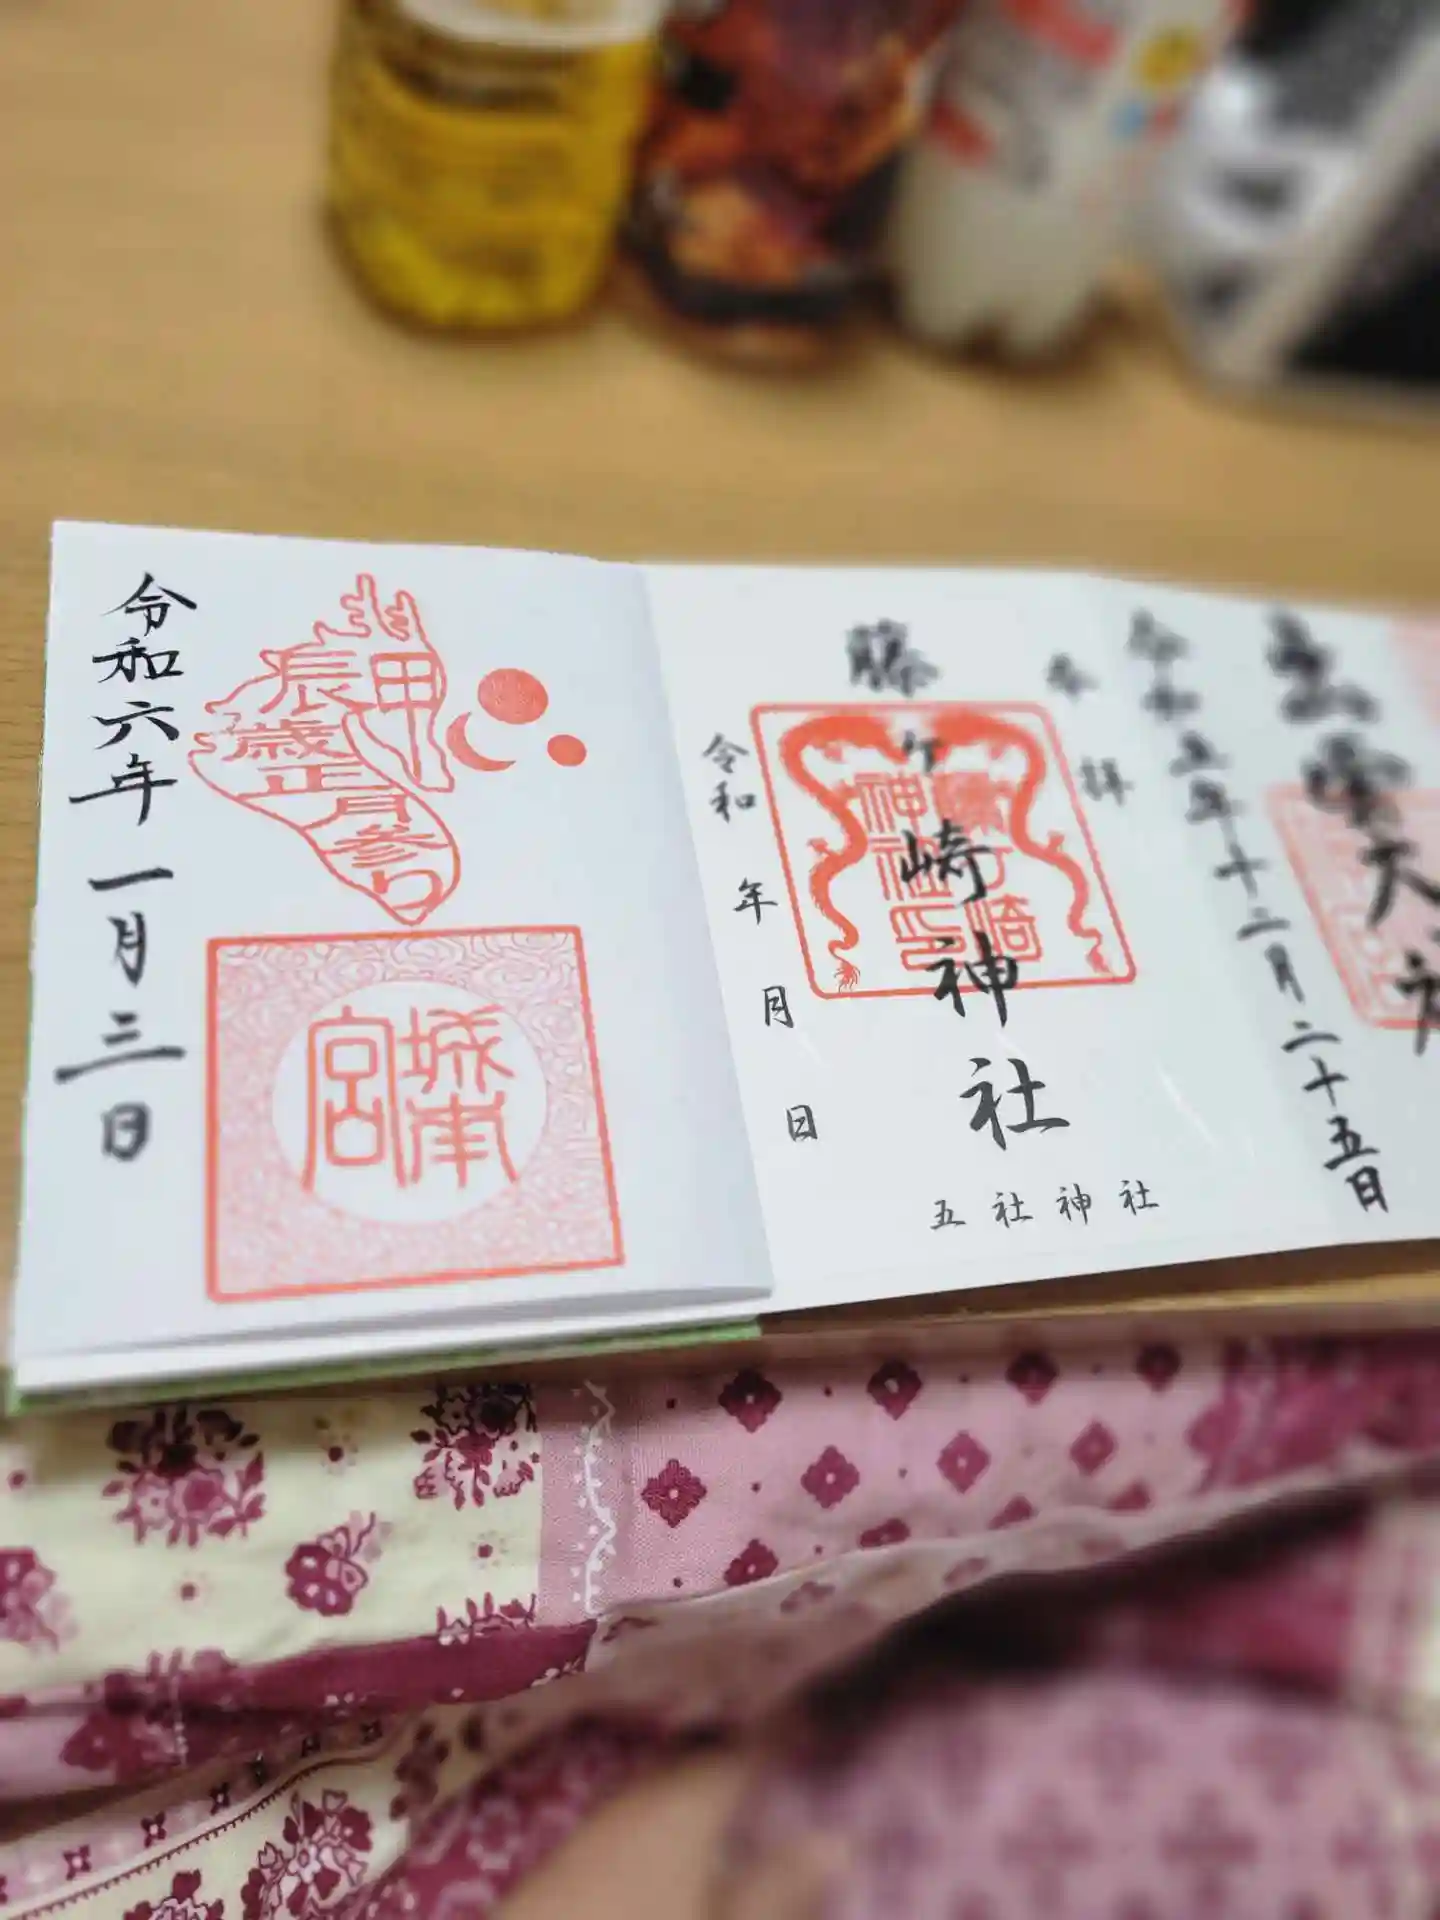 出雲大
令和五年十二月二十五日
奉拝
藤ヶ崎神社
藤ヶ崎
神社印
令和 年 月 日
五社神社
甲
辰
歳
正月参り
城南
宮
令和六年一月三日